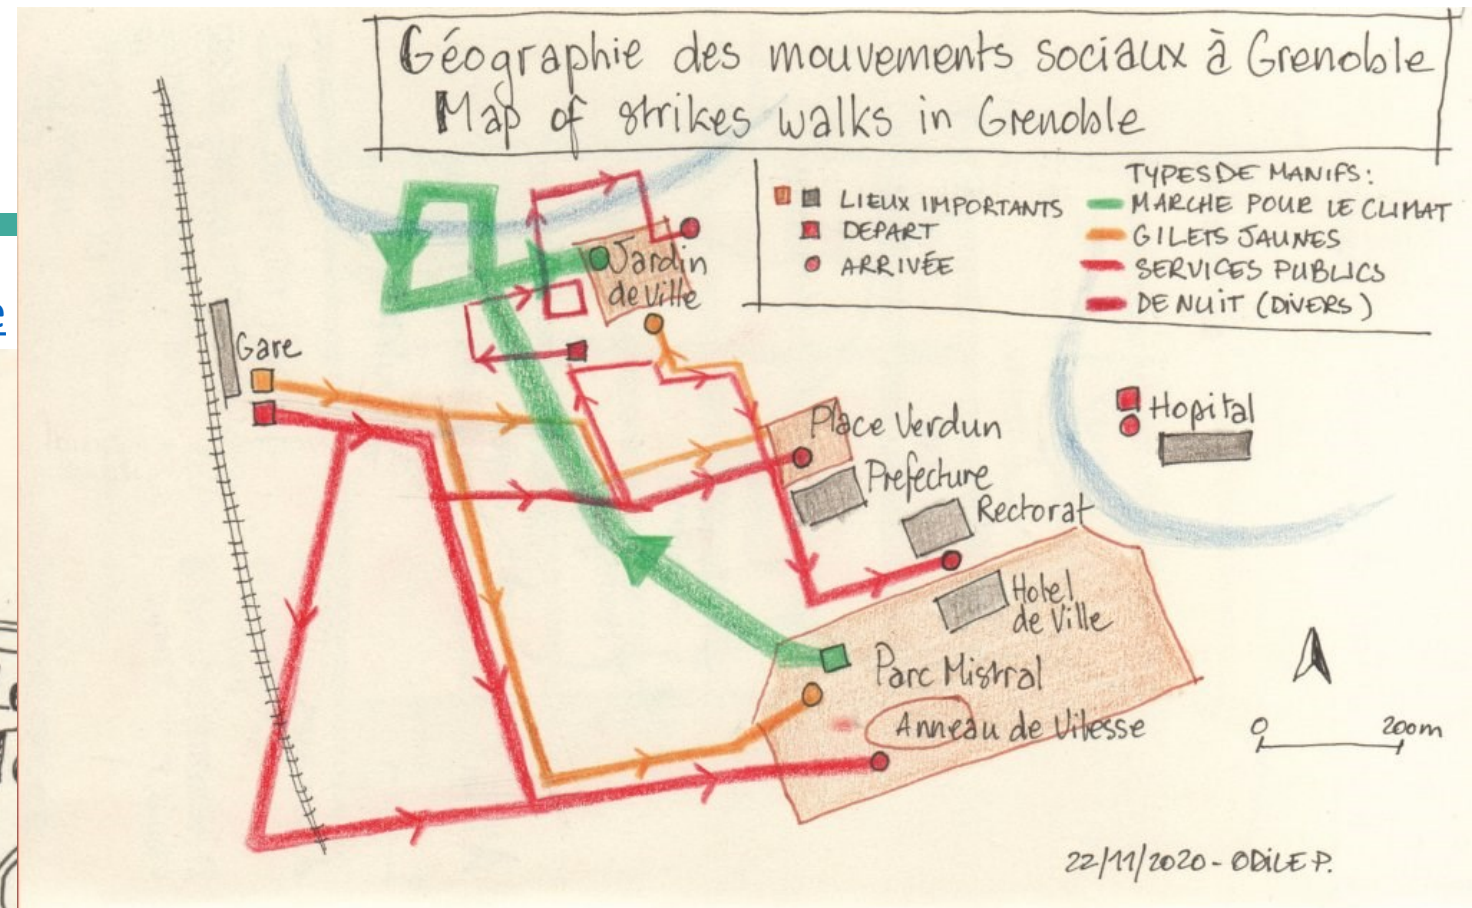 Géographie des mouvements sociaux à Grenoble
Map of strikes walks in Grenoble
TYPES DE MANIFS:
LIEUX IMPORTANTS
DEPART
ARRIVÉE
MARCHE POUR LE CLIMAT
GILETS JAUNES
SERVICES PUBLICS
DE NUIT (DIVERS)
Jardin
de ville
Gare
Hopital
Place Verdun
Prefecture
Rectorat
Hotel
de Ville
Parc Mistral
Anneau de Vitesse
0 200m
22/11/2020 - ODILE P.
e